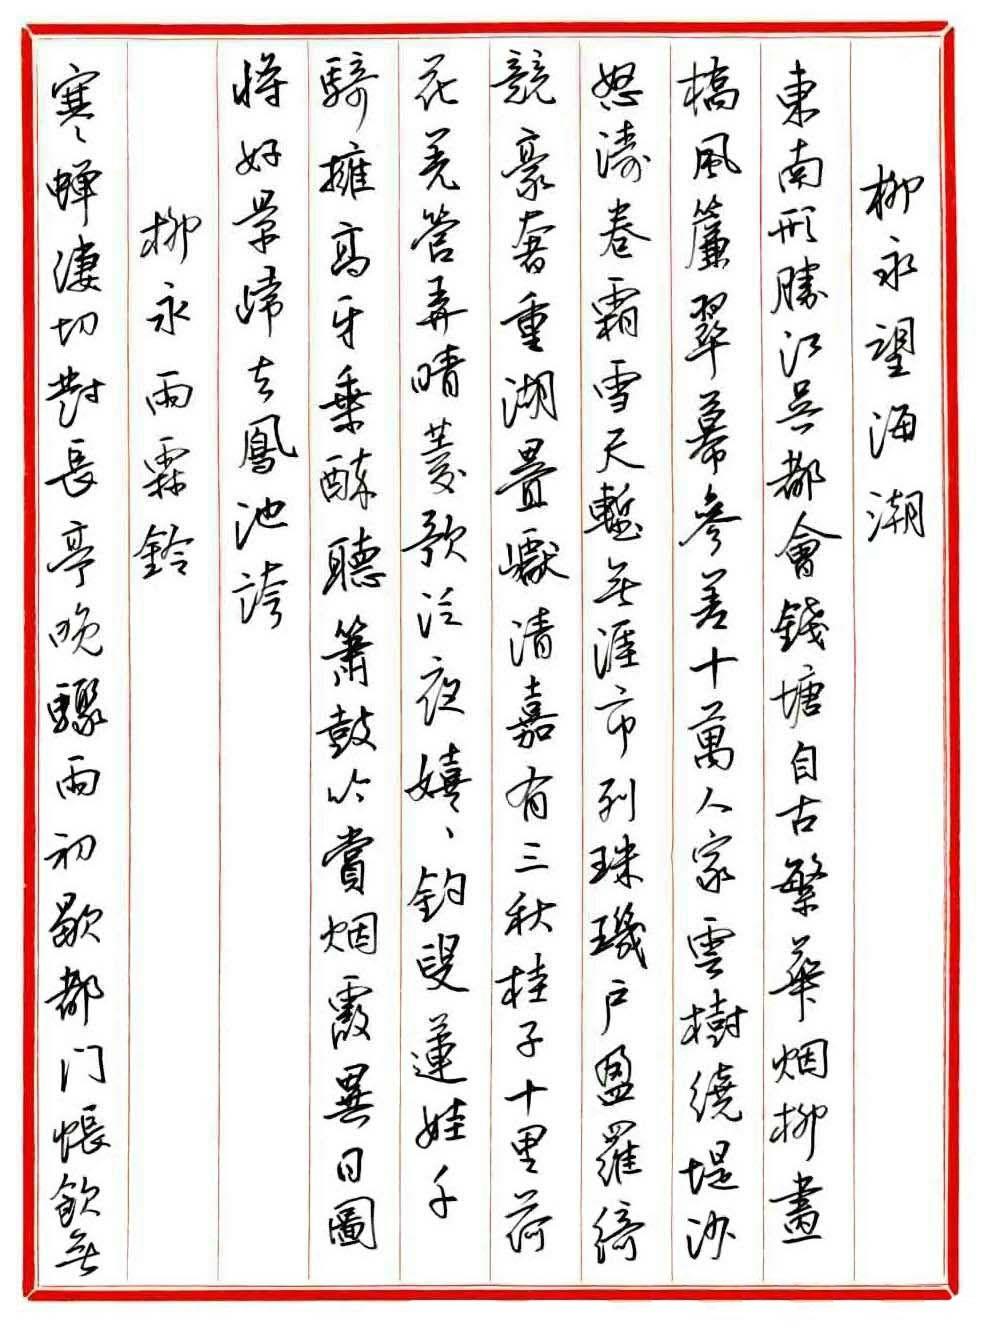 柳永望海潮
東南形勝江吳都會錢塘自古繁華烟柳畫
橋風簾翠幕參差十萬人家雲樹繞堤沙
怒濤卷霜雪天塹無涯市列珠璣戶盈羅綺
競豪奢重湖疊巘清嘉有三秋桂子十里荷
花羌管弄晴菱歌泛夜嬉〻釣叟蓮娃千
騎擁高牙乘醉聽簫鼓吟賞烟霞異日圖
將好景歸去鳳池誇
柳永雨霖鈴
寒〻蟬淒切對長亭晚驟雨初歇都门帳飲無